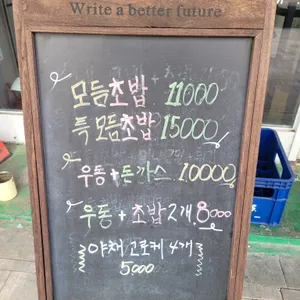 Write a better future
모듬초밥 11000
특 모듬초밥 15000
우동+돈까스 10000
우동+초밥2개 8000
야채 고로케 4개
5000